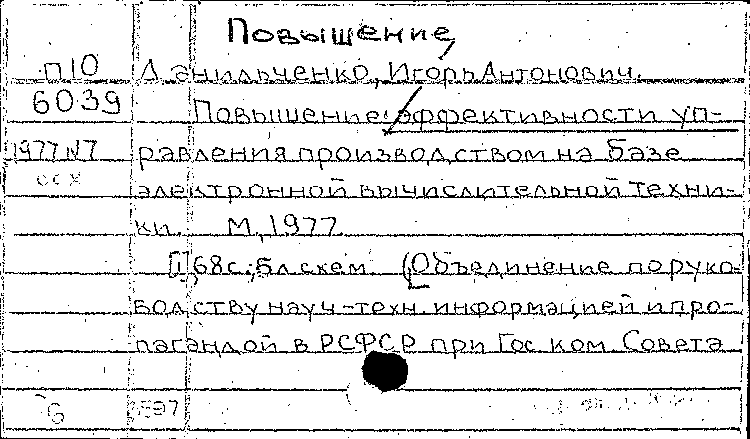 Повышение,
П10 Данильченко, Игорь Антонович.
6039 Повышение эффективности уп-
1977 N7 равления производством на базе
осх электронной вычислительной техни-
ки. М, 1977.
[1], 68 с.; 6 л схем. (Объединение по руко-
водству науч-техн. информацией и про-
пагандой в РСФСР при Гос ком. Совета